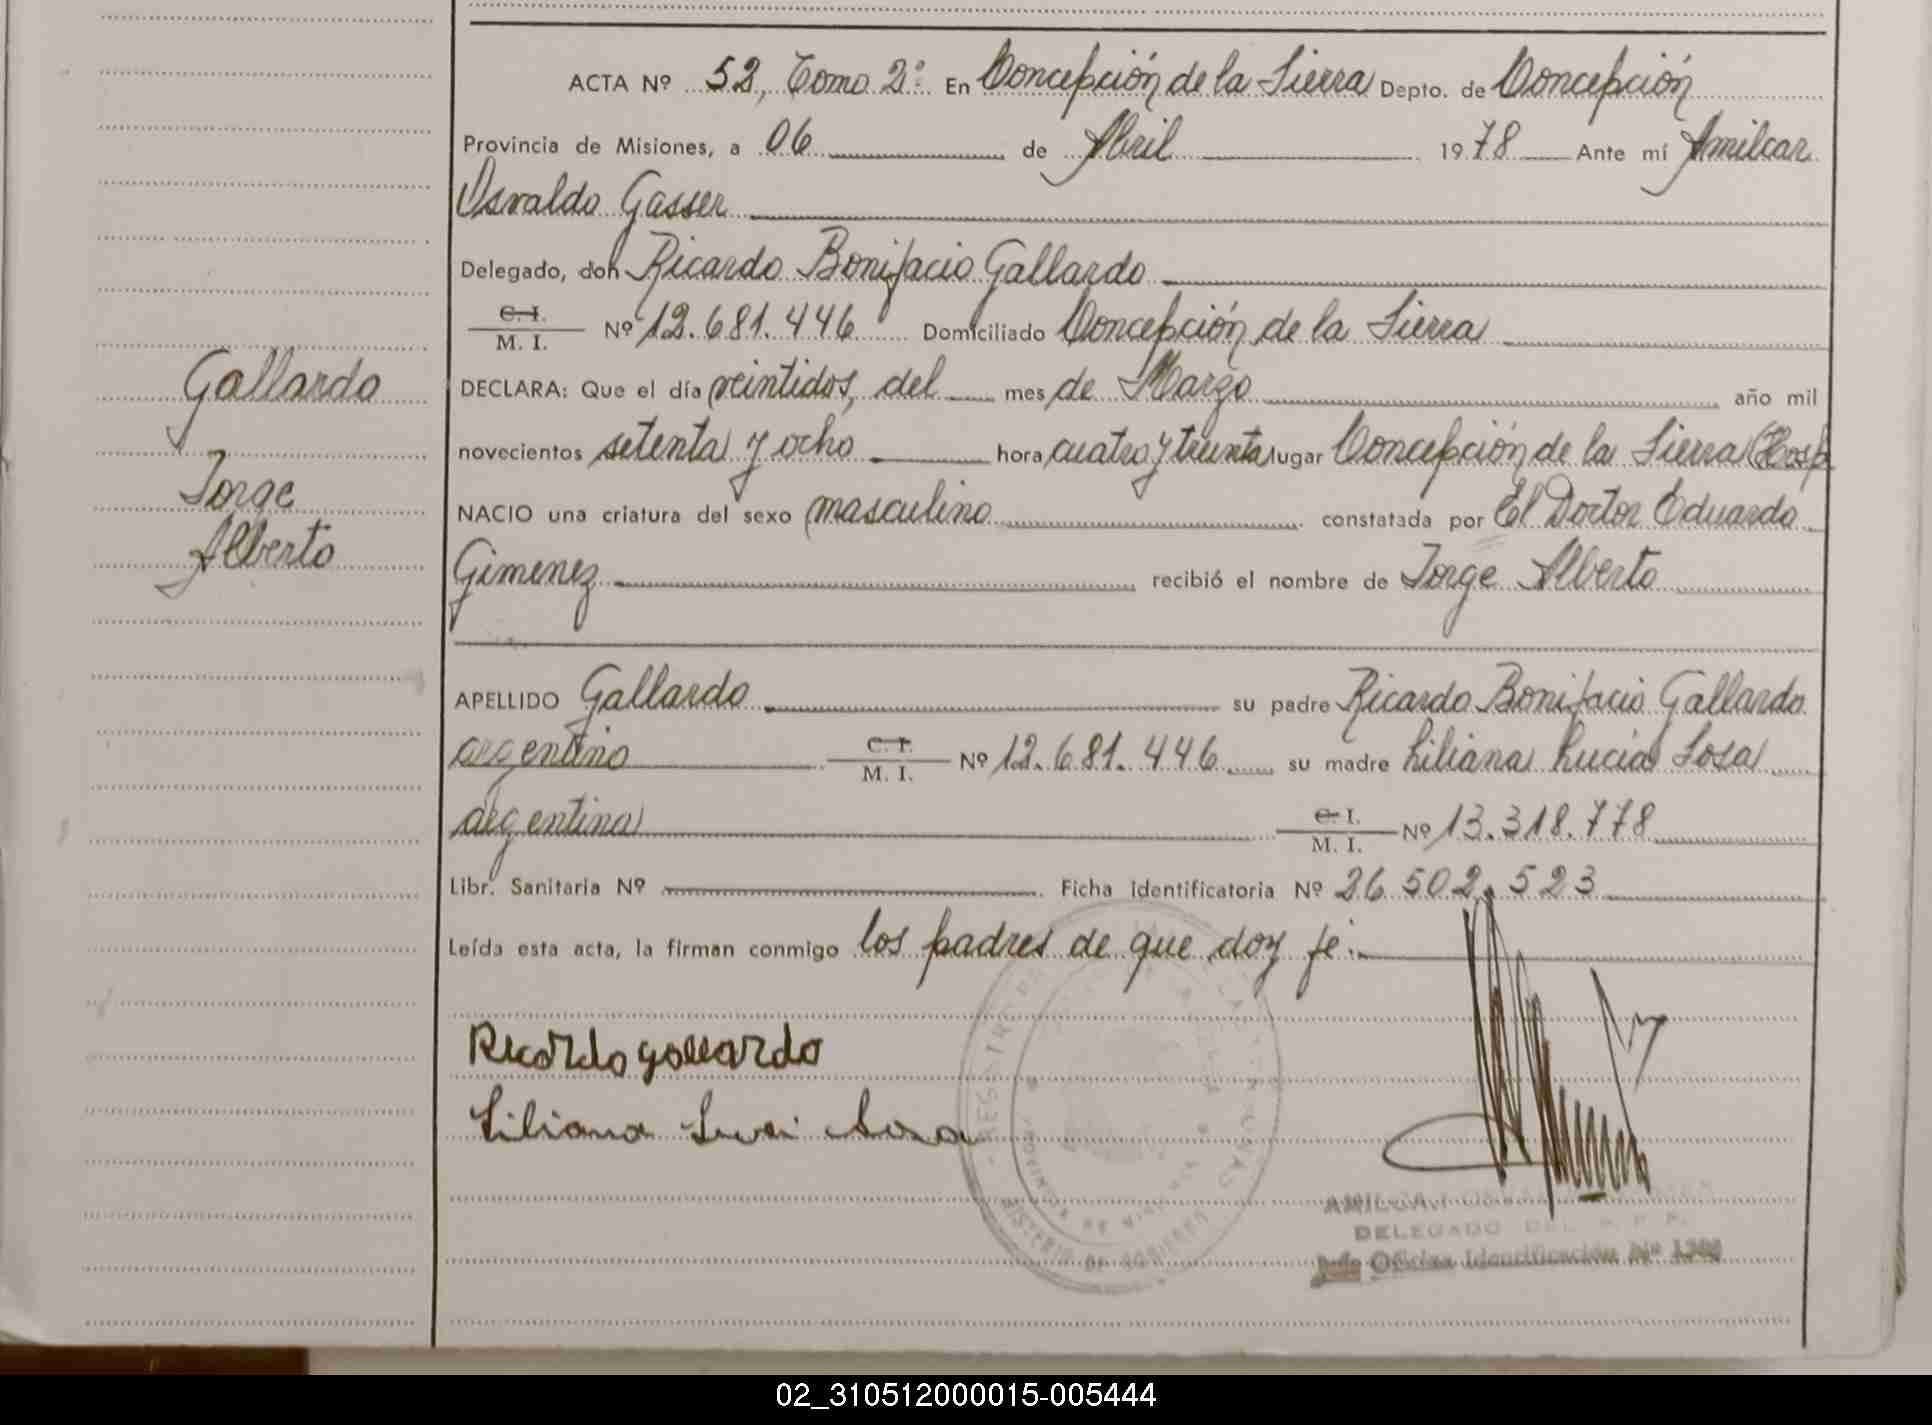 ACTA Nº 52, Tomo 2º En Concepción de la Sierra Depto. de Concepción
Provincia de Misiones, a 06 de Abril 1978 Ante mí Amilcar
Osvaldo Gasser
Delegado, don Ricardo Bonifacio Gallardo
C. I.
M. I. Nº 12.681.446 Domiciliado Concepción de la Sierra
DECLARA: Que el día veintidos, del mes de Marzo año mil
novecientos setenta y ocho hora cuatro y treinta lugar Concepción de la Sierra (Hosp
NACIO una criatura del sexo masculino constatada por El Doctor Eduardo
Gimenez recibió el nombre de Jorge Alberto
Gallardo
Jorge
Alberto
APELLIDO Gallardo su padre Ricardo Bonifacio Gallardo
argentino C. I. M. I. Nº 12.681.446 su madre Liliana Lucia Sosa
argentina C. I. M. I. Nº 13.318.778
Libr. Sanitaria Nº Ficha identificatoria Nº 26.502.523
Leída esta acta, la firman conmigo los padres de que doy fé.
Ricardo Gallardo
Liliana Sosa
REGISTRO
MINISTERIO DE GOBIERNO
PROVINCIA DE MISIONES
AMILCAR
DELEGADO DEL
Jefe Oficina Identificación Nº
02_310512000015-005444